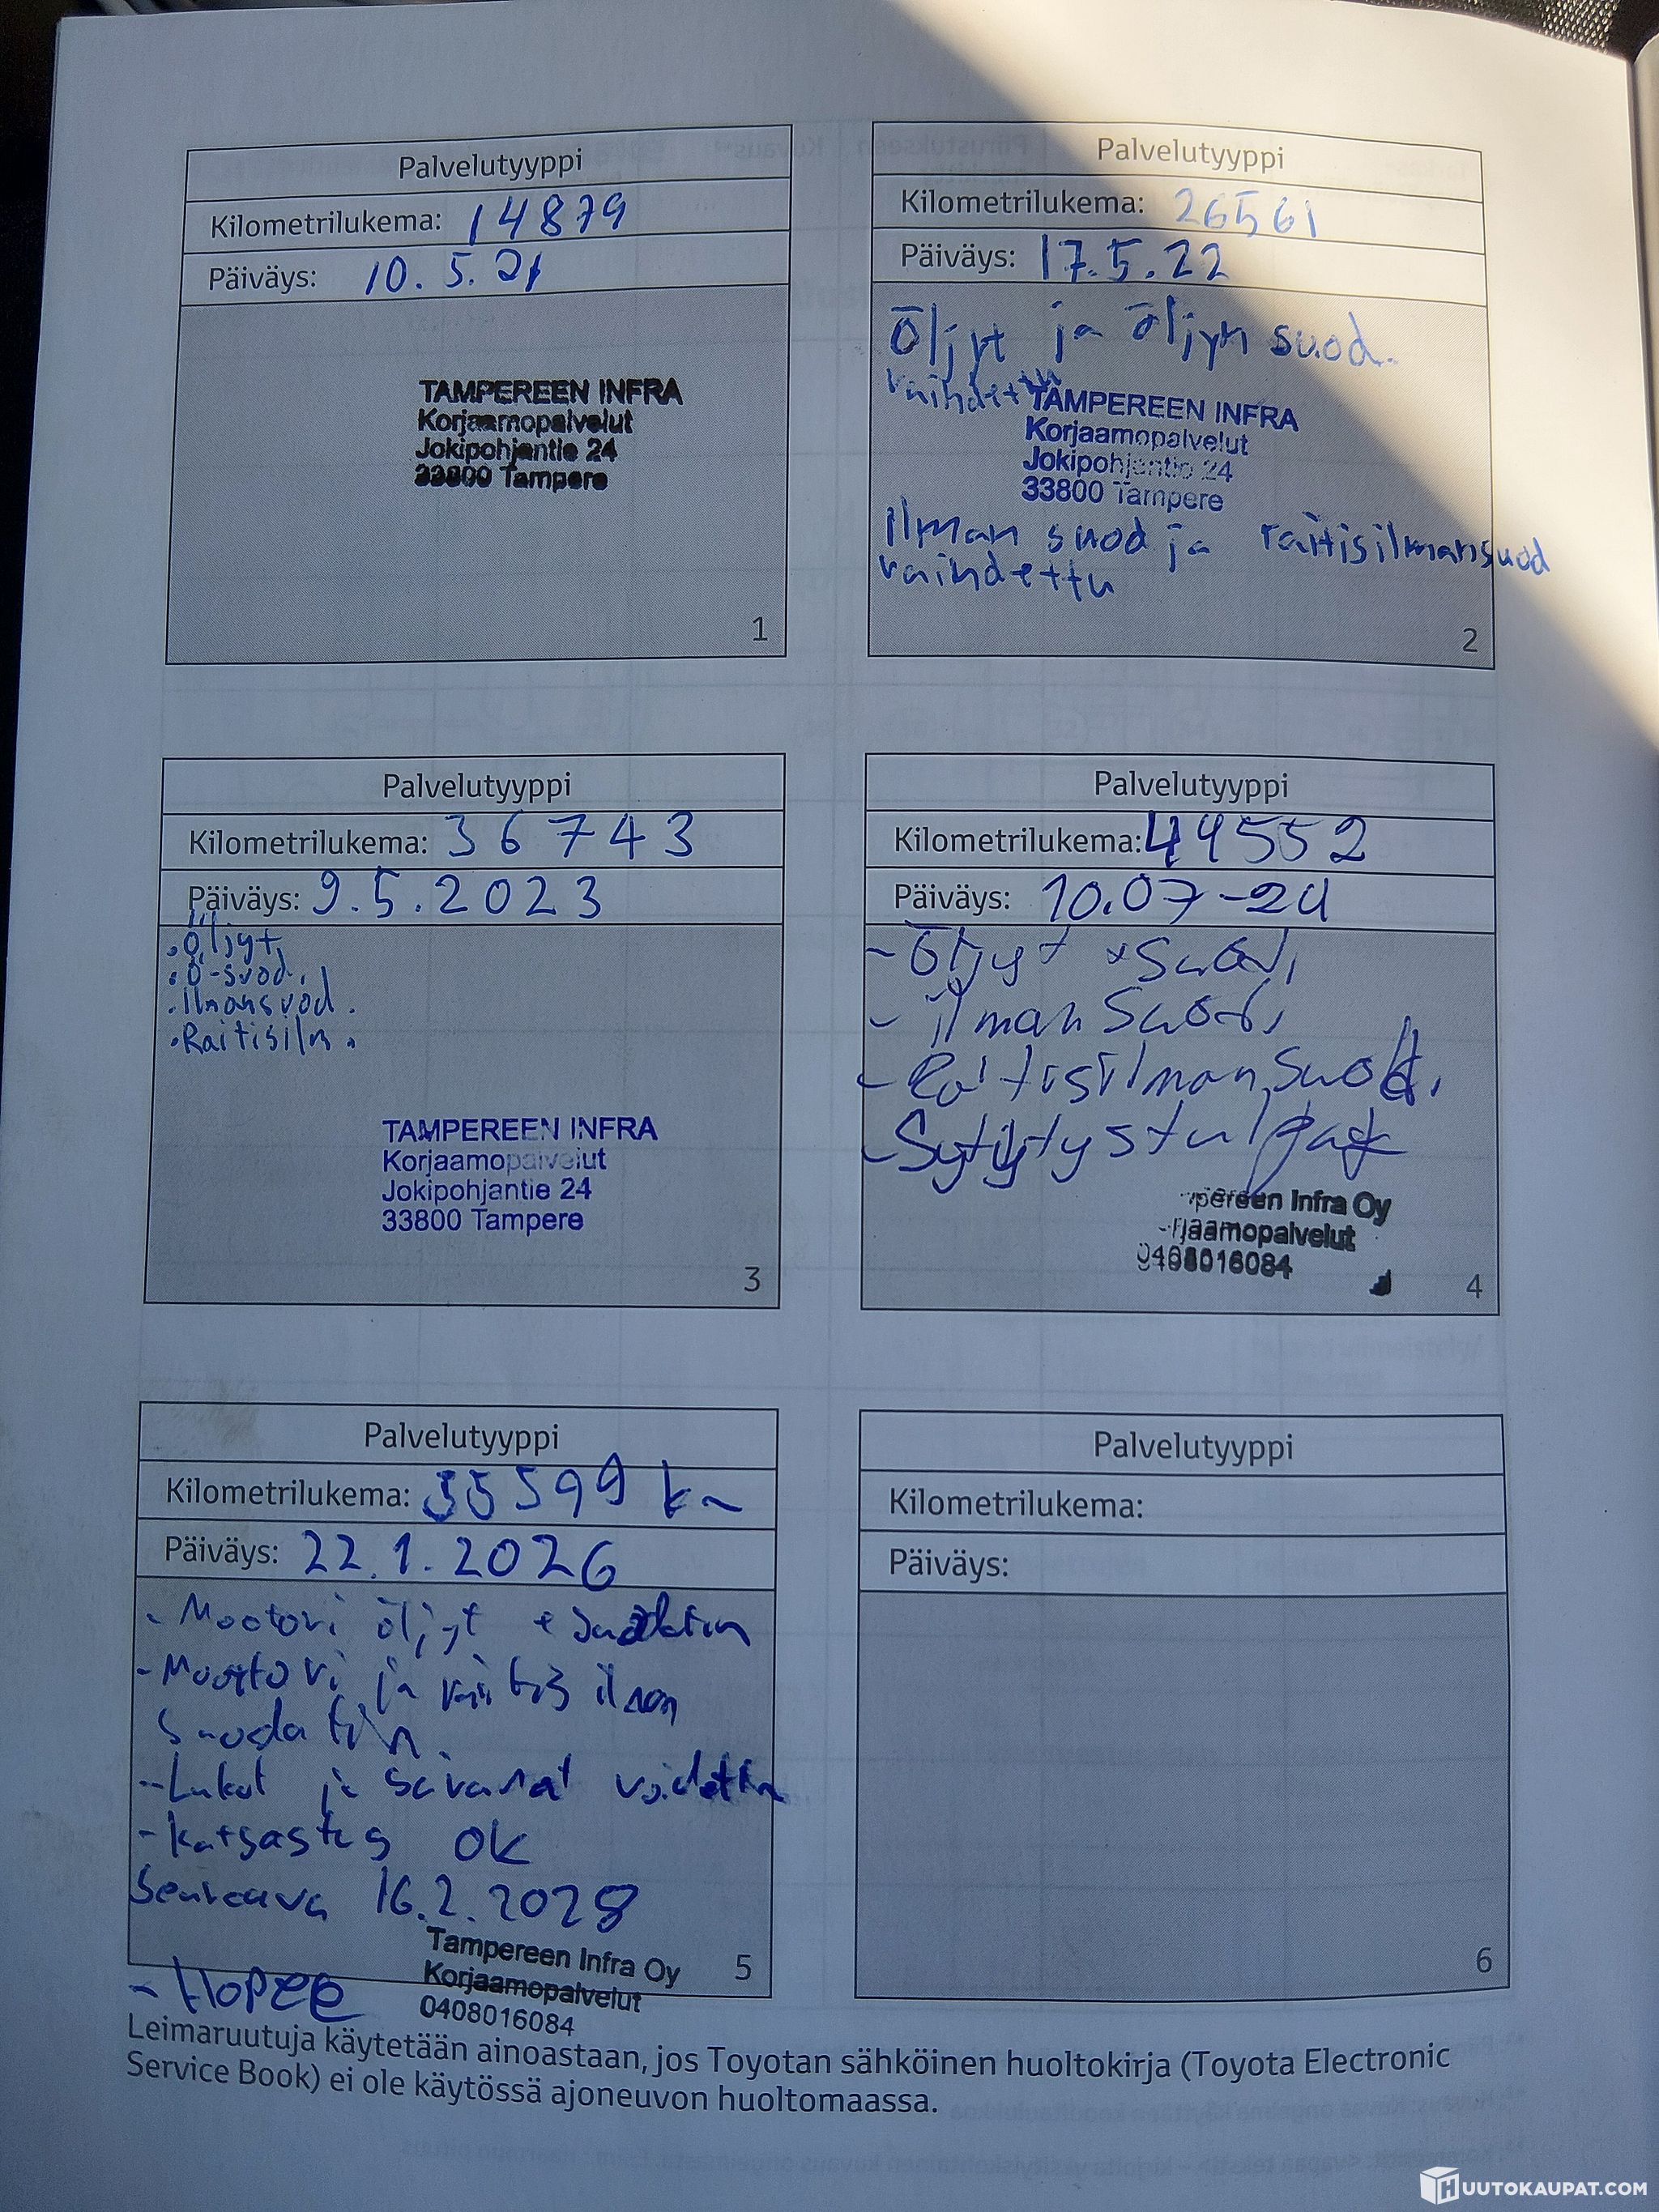 Palvelutyyppi
Kilometrilukema: 14879
Päiväys: 10.5.21
TAMPEREEN INFRA
Korjaamopalvelut
Jokipohjantie 24
33800 Tampere
1
Palvelutyyppi
Kilometrilukema: 26561
Päiväys: 17.5.22
Öljyt ja öljyn suod.
vaihdettu
TAMPEREEN INFRA
Korjaamopalvelut
Jokipohjantie 24
33800 Tampere
ilman suod ja raitisilmansuod
vaihdettu
2
Palvelutyyppi
Kilometrilukema: 36743
Päiväys: 9.5.2023
.Öljyt,
.Ö-suod.
.Ilmansuod.
.Raitisilm.
TAMPEREEN INFRA
Korjaamopalvelut
Jokipohjantie 24
33800 Tampere
3
Palvelutyyppi
Kilometrilukema: 44552
Päiväys: 10.07-24
- Öljyt + Suod,
- ilman Suod,
- Raitisilman Suod,
- Sytytystulpat
pereen Infra Oy
rjaamopalvelut
0408016084
4
Palvelutyyppi
Kilometrilukema: 55599 km
Päiväys: 22.1.2026
- Moottori öljyt + suodatin
- Moottori ja raitis ilman
suodatin.
- Lukot ja saranat voideltu
- Katsastus OK
Seuraava 16.2.2028
Tampereen Infra Oy
Korjaamopalvelut
0408016084
5
Palvelutyyppi
Kilometrilukema:
Päiväys:
6
Leimaruutuja käytetään ainoastaan, jos Toyotan sähköinen huoltokirja (Toyota Electronic
Service Book) ei ole käytössä ajoneuvon huoltomaassa.
HUUTOKAUPAT.COM